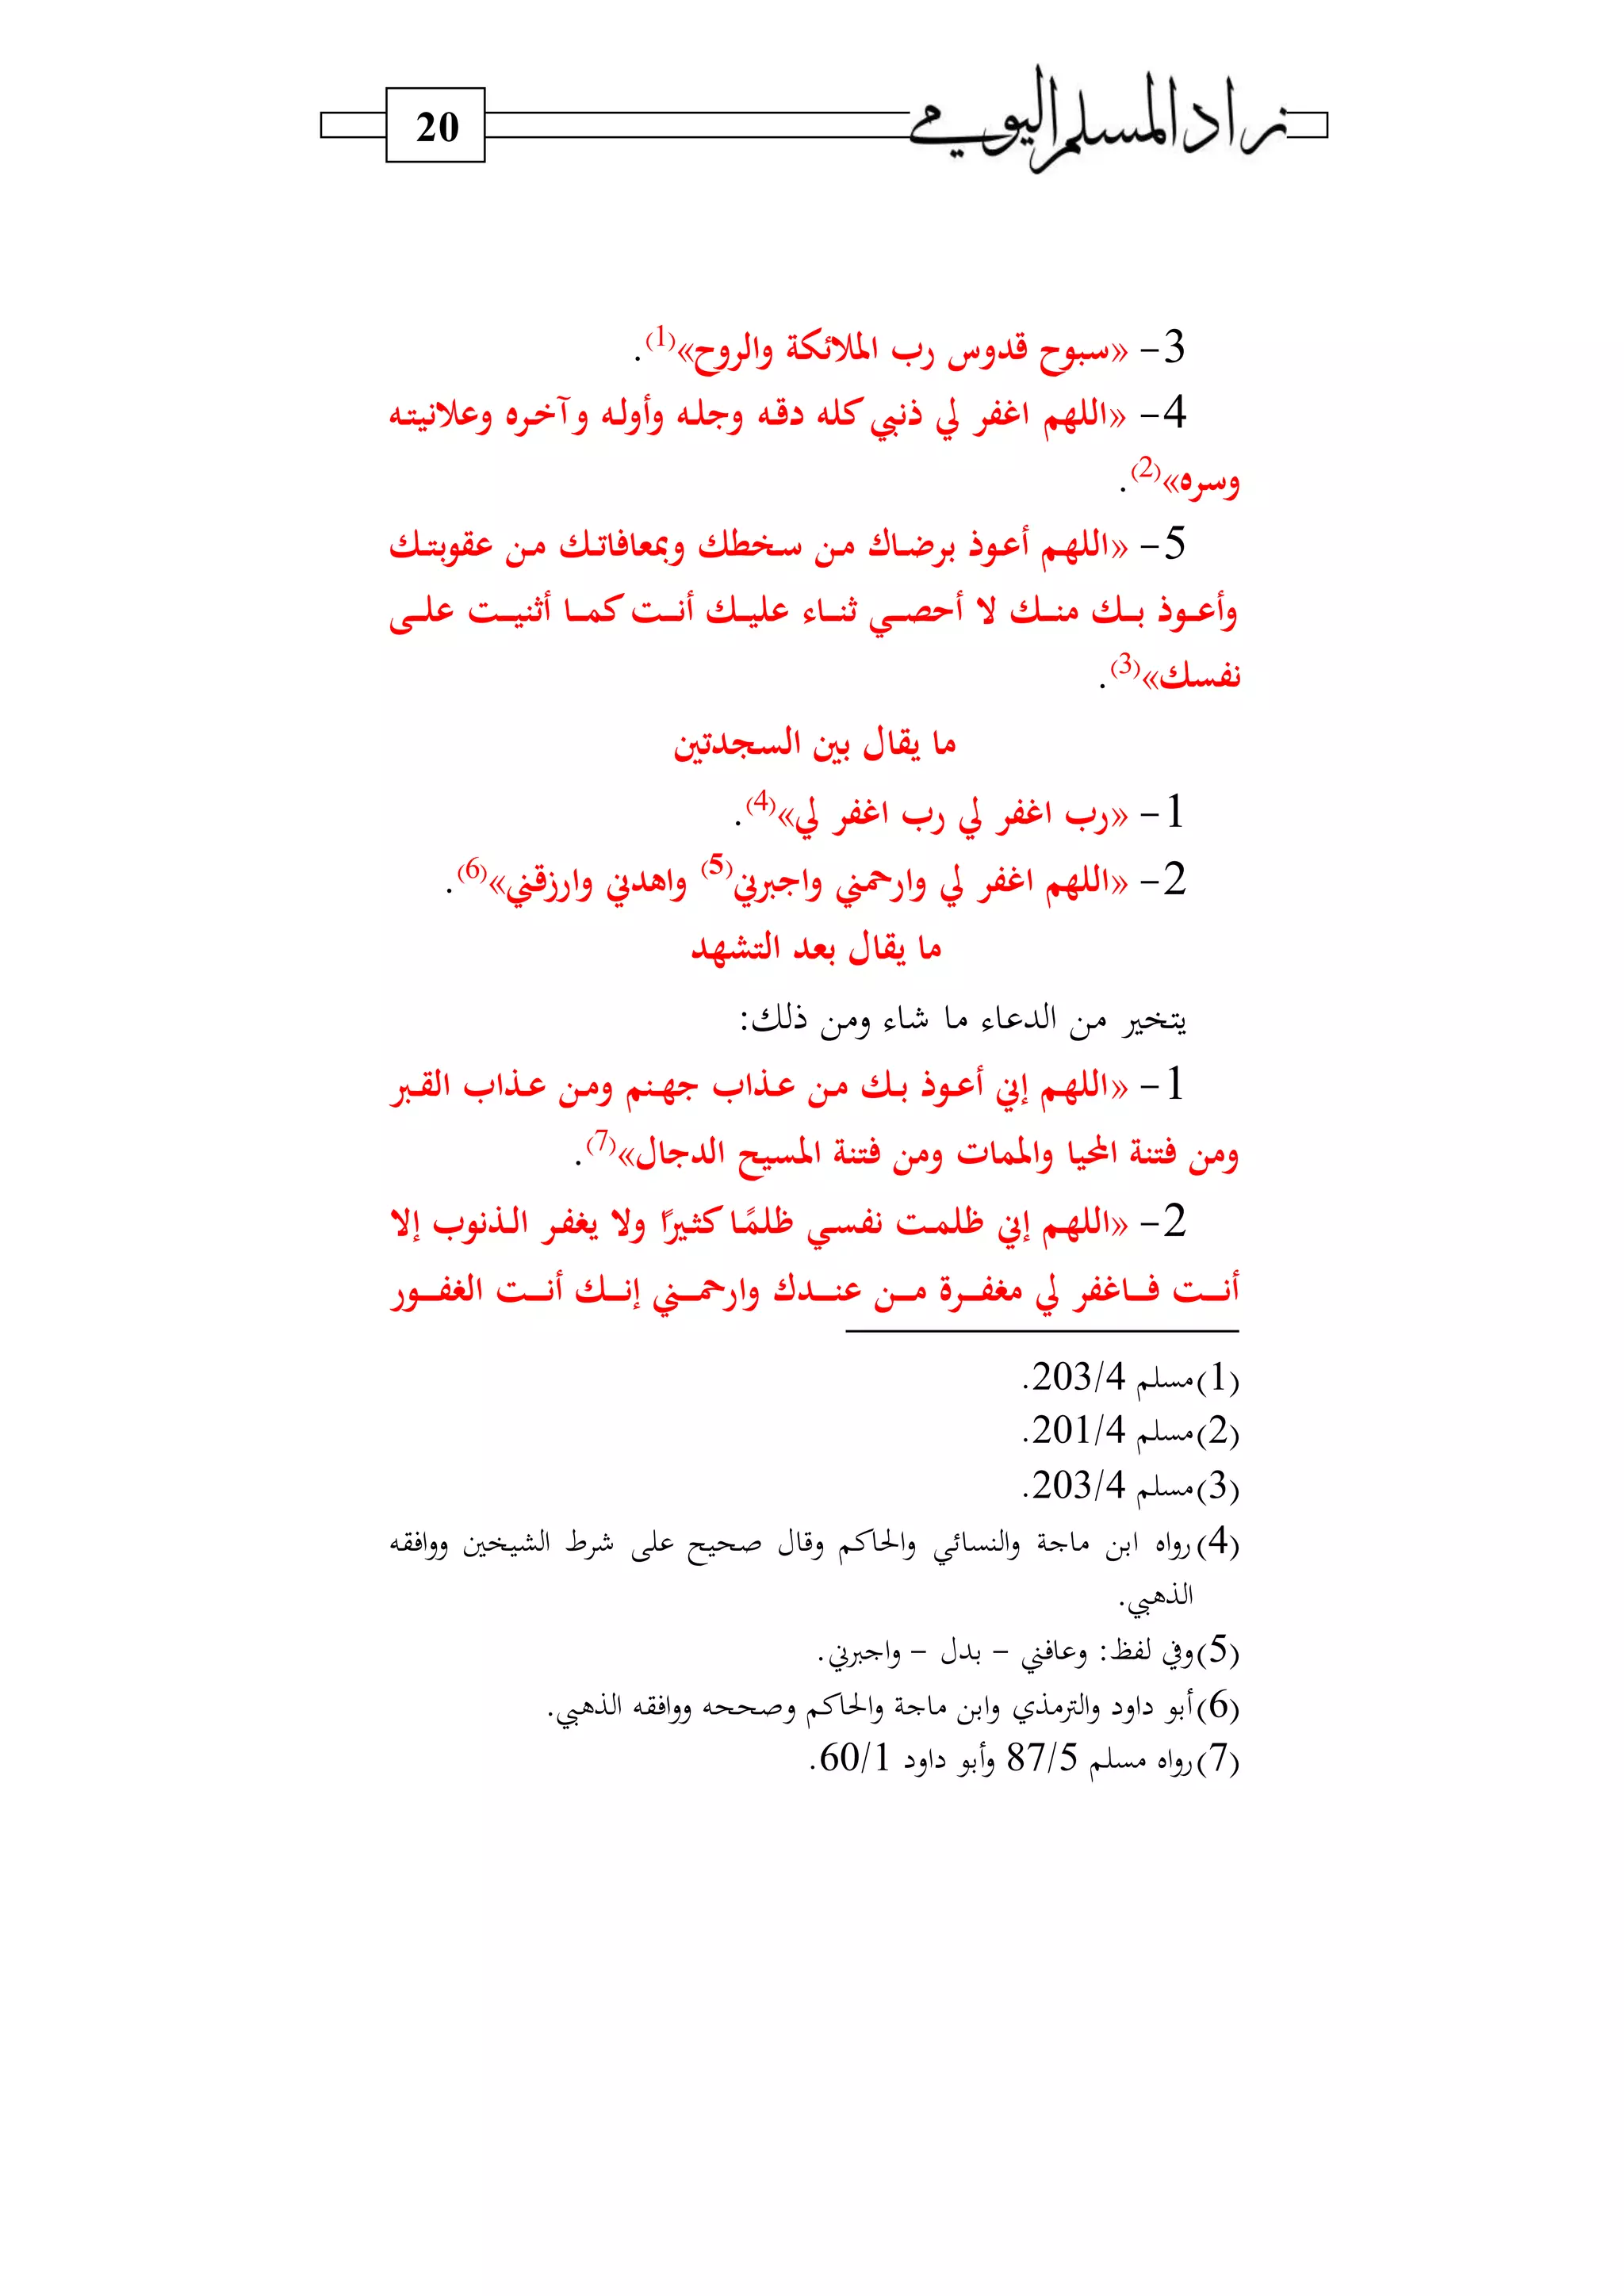 زاد المسلم اليومي
20
3- «سبوح قدوس رب الملائكة والروح»(1).
4- «اللهم اغفر لي ذنبي كله دقه وجله وأوله وآخره وعلانيته
وسره»(2).
5- «اللهم أعوذ برضاك من سخطك وبمعافاتك من عقوبتك
وأعوذ بك منك لا أحصي ثناء عليك أنت كما أثنيت على
نفسك»(3).
ما يقال بين السجدتين
1- «رب اغفر لي رب اغفر لي»(4).
2- «اللهم اغفر لي وارحمني واجبرني(5) واهدني وارزقني»(6).
ما يقال بعد التشهد
يتخير من الدعاء ما شاء ومن ذلك:
1- «اللهم إني أعوذ بك من عذاب جهنم ومن عذاب القبر
ومن فتنة المحيا والممات ومن فتنة المسيح الدجال»(7).
2- «اللهم إني ظلمت نفسي ظلمًا كثيرًا ولا يغفر الذنوب إلا
أنت فاغفر لي مغفرة من عندك وارحمني إنك أنت الغفور
(1) مسلم 203/4.
(2) مسلم 201/4.
(3) مسلم 203/4.
(4) رواه ابن ماجة والنسائي والحاكم وقال صحيح على شرط الشيخين ووافقه
الذهبي.
(5) وفي لفظ: وعافني – بدل – واجبرني.
(6) أبو داود والترمذي وابن ماجة والحاكم وصححه ووافقه الذهبي.
(7) رواه مسلم 87/5 وأبو داود 60/1.